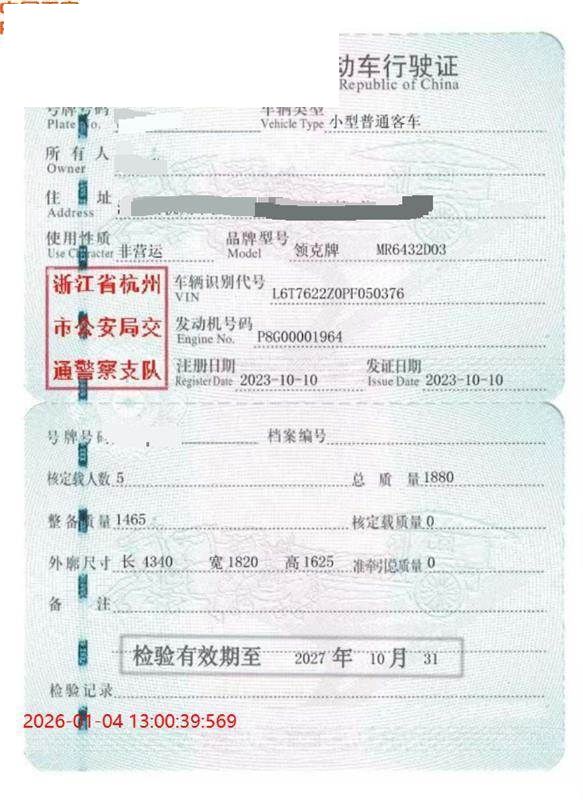 动车行驶证
Republic of China
号牌号码 车辆类型 小型普通客车
Plate No. Vehicle Type
所有人
Owner
住址
Address
使用性质 非营运 品牌型号 领克牌 MR6432D03
Use Character Model
浙江省杭州
市公安局交
通警察支队
车辆识别代号 L6T7622Z0PF050376
VIN
发动机号码 P8G00001964
Engine No.
注册日期 2023-10-10 发证日期 2023-10-10
Register Date Issue Date
号牌号码 档案编号
核定载人数 5 总质量 1880
整备质量 1465 核定载质量 0
外廓尺寸 长 4340 宽 1820 高 1625 准牵引总质量 0
备注
检验有效期至 2027 年 10 月 31
检验记录
2026-01-04 13:00:39:569